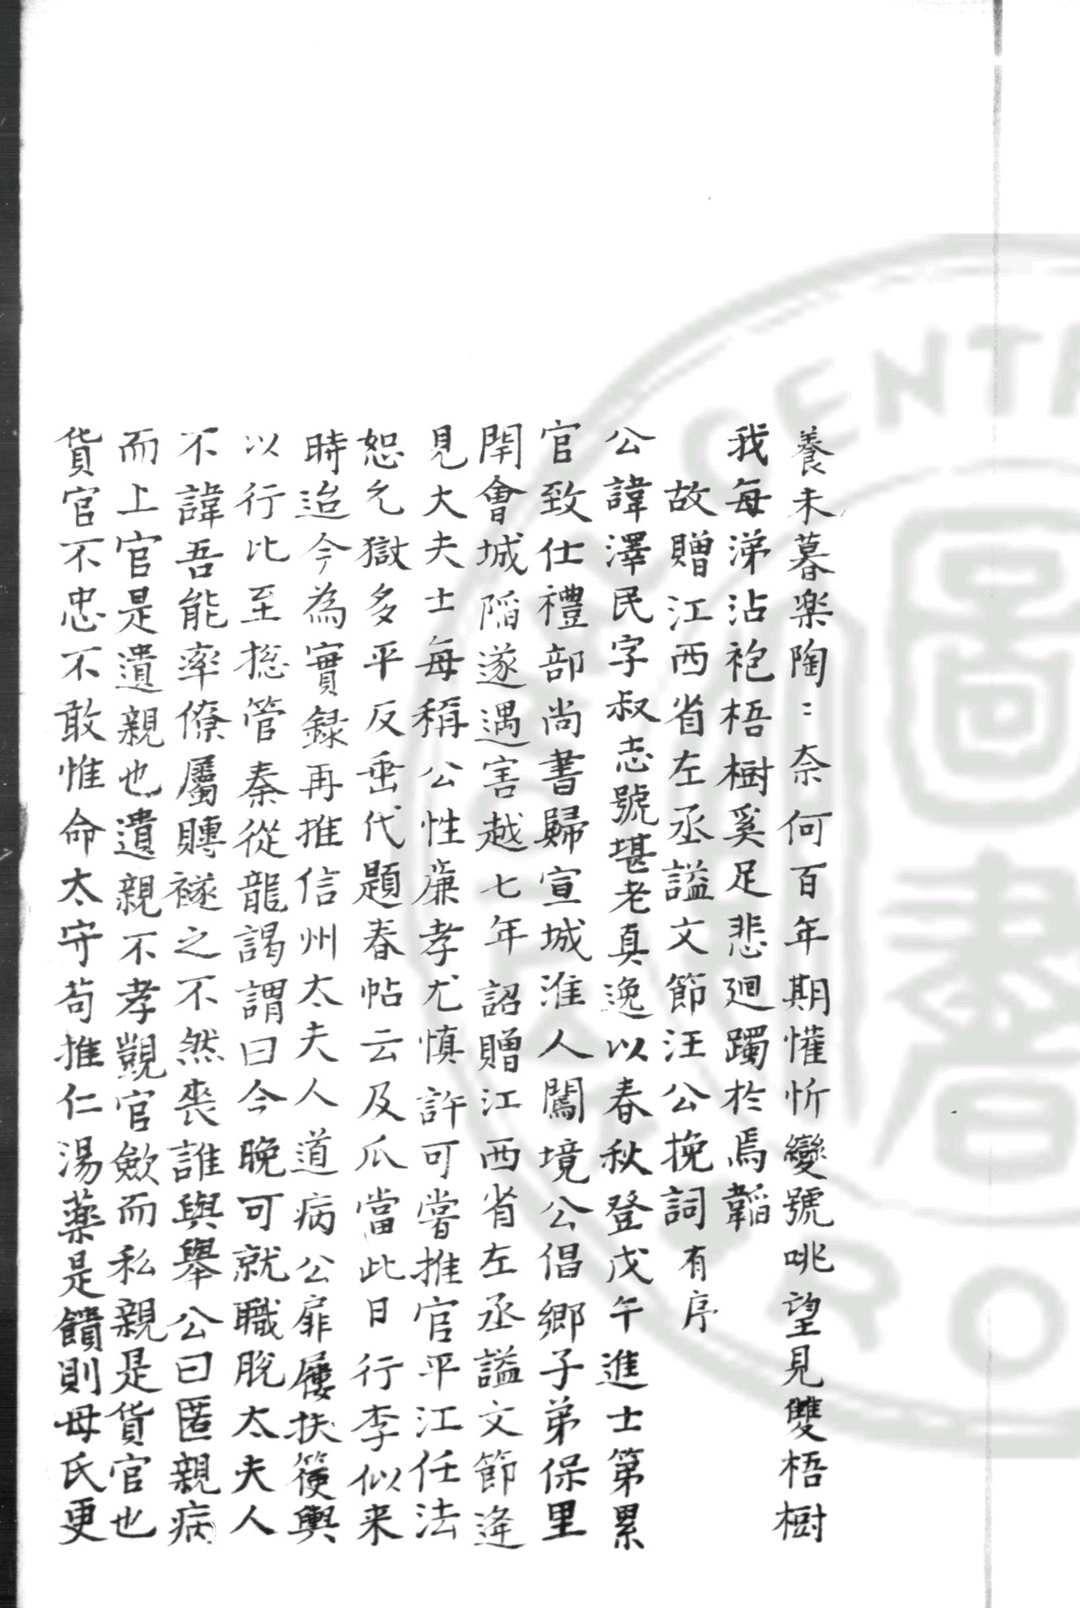 養未暮樂陶〻奈何百年期懽忻變號咷望見雙梧樹
我每涕沾袍梧樹奚足悲廻躅於焉韜
故贈江西省左丞謚文節汪公挽詞有序
公諱澤民字叔志號堪老真逸以春秋登戊午進士第累
官致仕禮部尚書歸宣城淮人闖境公倡鄉子弟保里
閈會城陷遂遇害越七年詔贈江西省左丞謚文節逄
見大夫士每稱公性廉孝尤慎許可嘗推官平江任法
恕乞獄多平反垂代題春帖云及瓜當此日行李似来
時迨今為實録再推信州太夫人道病公扉屨扶籧輿
以行比至揔管秦從龍謁謂曰今晚可就職脫太夫人
不諱吾能率僚屬賻襚之不然喪誰與舉公曰匿親病
而上官是遺親也遺親不孝覬官斂而私親是貨官也
貨官不忠不敢惟命太守苟推仁湯藥是饋則母氏更